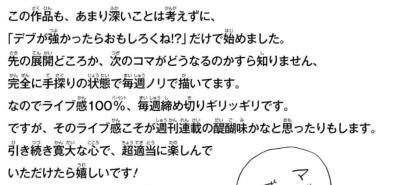 この作品も、あまり深いことは考えずに、
「デブが強かったらおもしろくね!?」だけで始めました。
先の展開どころか、次のコマがどうなるのかすら知りません、
完全に手探りの状態で毎週ノリで描いてます。
なのでライブ感100%、毎週締め切りギリッギリです。
ですが、そのライブ感こそが週刊連載の醍醐味かなと思ったりもします。
引き続き寛大な心で、超適当に楽しんで
いただけたら嬉しいです!
マ